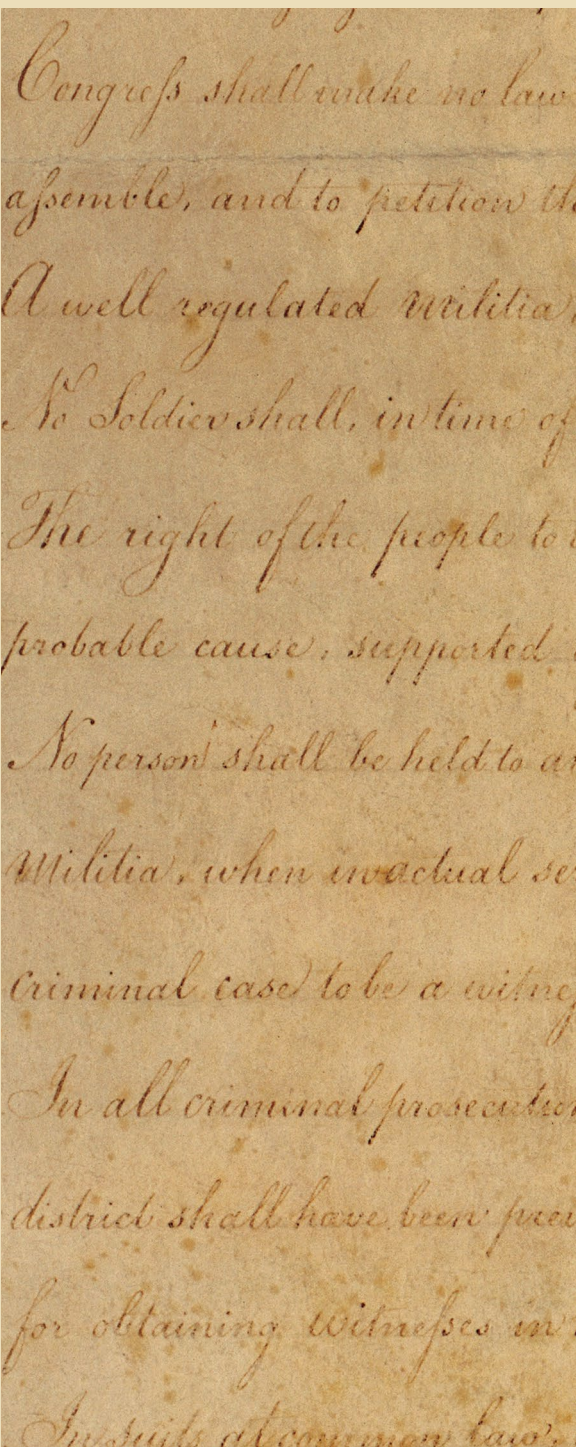 Congreſs shall make no law
aſsemble, and to petition th
A well regulated Militia,
No Soldier shall, in time of
The right of the people to
probable cause, supported
No person shall be held to an
Militia, when in actual ser
criminal case to be a witneſ
In all criminal prosecution
district shall have been prev
for obtaining witneſses in
In suits at common law,